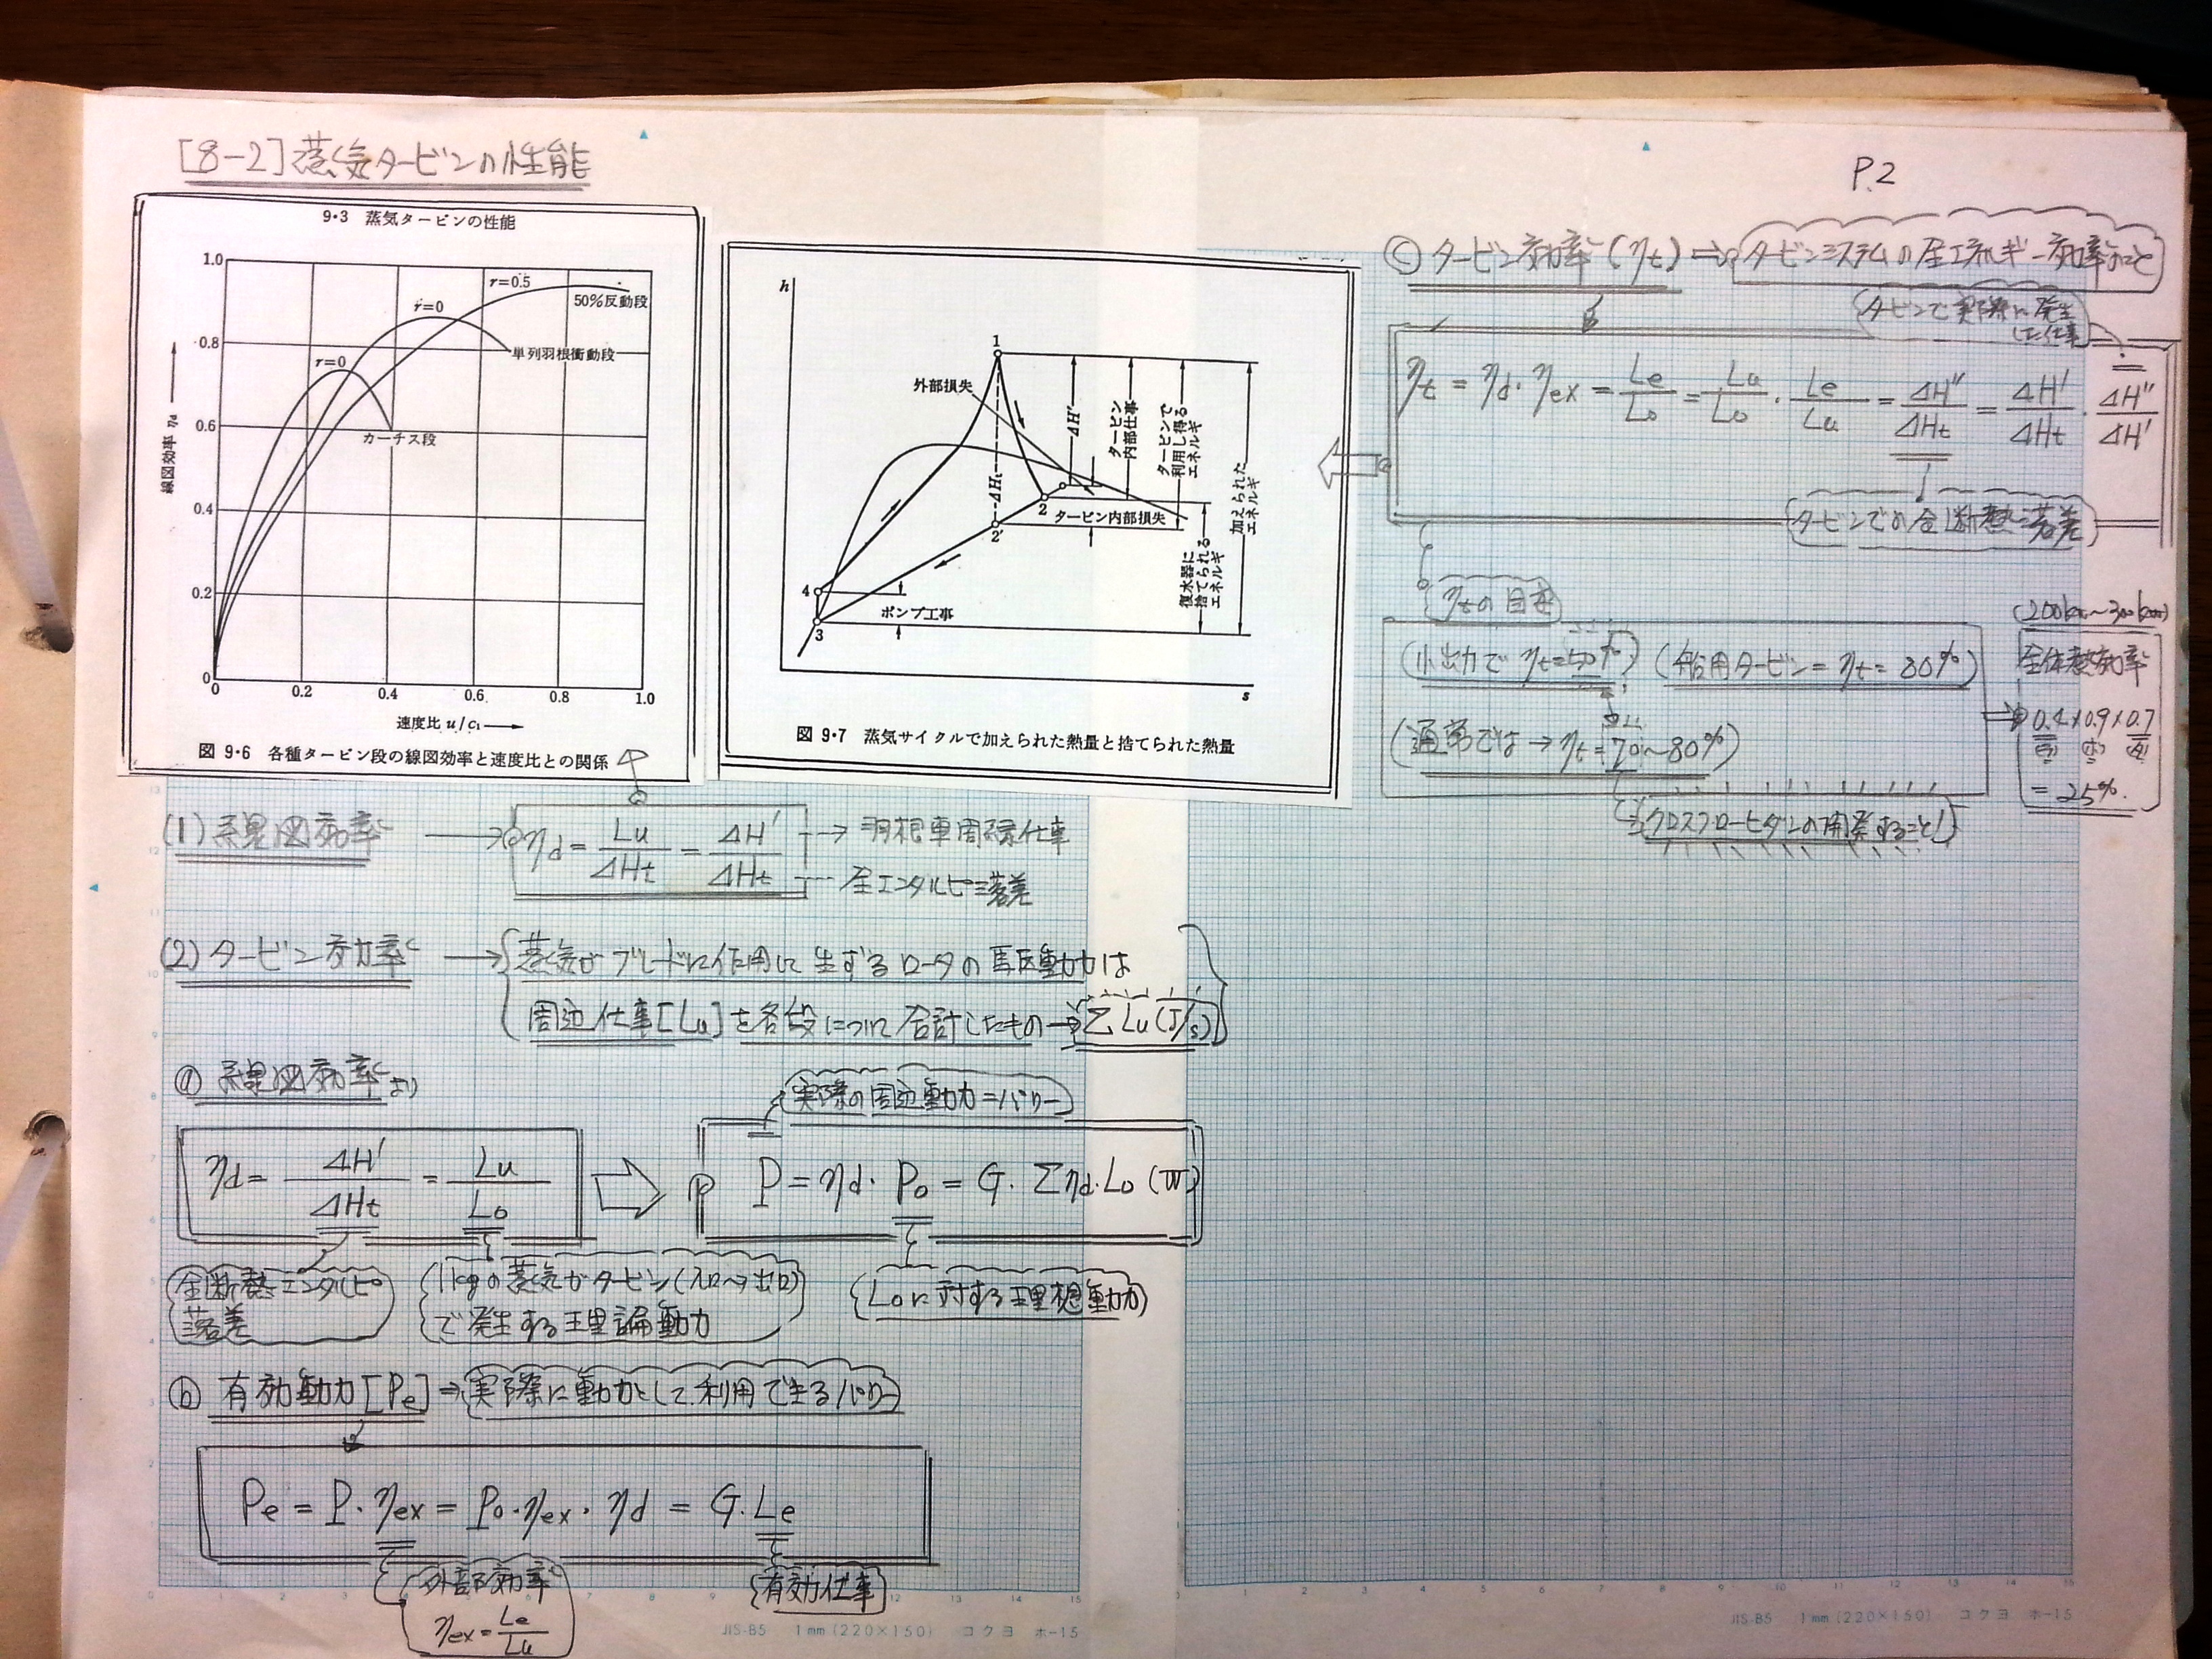 [8-2] 蒸気タービンの性能
P.2
9・3 蒸気タービンの性能
1.0
0.8
0.6
0.4
0.2
0
線図効率 ηd
r=0.5
50%反動段
r=0
単列羽根衝動段
r=0
カーチス段
0
0.2
0.4
0.6
0.8
1.0
速度比 u/c₁
図 9・6 各種タービン段の線図効率と速度比との関係
h
1
外部損失
ΔH'
タービン内部仕事
タービンで利用し得るエネルギ
加えられたエネルギ
ΔHt
2
タービン内部損失
2'
復水器に捨てられるエネルギ
4
ポンプ工事
3
s
図 9・7 蒸気サイクルで加えられた熱量と捨てられた熱量
(1) 線図効率 → ηd = Lu/ΔHt = ΔH'/ΔHt
→ 羽根車周縁仕事
全エンタルピ落差
(2) タービン効率 → 蒸気がブレードに作用して生ずるロータの馬区動力は
周辺仕事[Lu]を各段について合計したもの → ΣLu (J/s)
ⓐ 線図効率より
ηd = ΔH'/ΔHt = Lu/Lo
実際の周辺動力=パワー
P = ηd・Po = G・Σηd・Lo (W)
全断熱エンタルピ落差
1kgの蒸気がタービン(入口〜出口)
で発生する理論動力
Loに対する理想動力
ⓑ 有効動力[Pe] ⇒ 実際に動力として利用できるパワー
Pe = P・ηex = Po・ηex・ηd = G・Le
外部効率
ηex = Le/Lu
有効仕事
ⓒ タービン効率(ηt) ⇒ タービンシステムの全エネルギー効率のこと
タービンで実際に発生した仕事
ηt = ηd・ηex = Le/Lo = Lu/Lo・Le/Lu = ΔH''/ΔHt = ΔH'/ΔHt・ΔH''/ΔH'
タービンでの全断熱落差
ηtの目安
(小出力で ηt=50%) (舶用タービン = ηt = 80%)
(通常では → ηt = 70〜80%)
クロスフロータービンの開発すること!
全体熱効率
0.4×0.9×0.7
= 25%
JIS-B5 1mm (220×150) コクヨ ホ-15
JIS-B5 1mm (220×150) コクヨ ホ-15